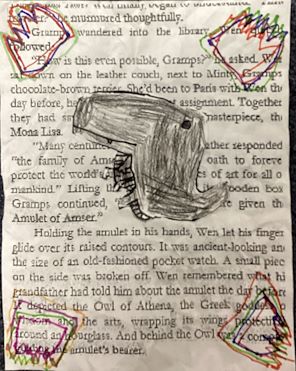 er." she murmured thoughtfully.
Gramps wandered into the library. Wen
followed.
"How is this even possible, Gramps?" he asked. Wen
sat down on the leather couch, next to Minty, Gramps
chocolate-brown terrier. She'd been to Paris with Wen the
day before, he assignment. Together
they had sa masterpiece, th
Mona Lisa.
"Many centur ather responded
"the family of Amse oath to foreve
protect the world's es of art for all o
mankind." Lifting th ooden box
Gramps continued, " re given th
Amulet of Amser."
Holding the amulet in his hands, Wen let his finger
glide over its raised contours. It was ancient-looking an
the size of an old-fashioned pocket watch. A small piec
on the side was broken off. Wen remembered what hi
grandfather had told him about the amulet the day before
it depicted the Owl of Athena, the Greek goddess
wisdom and the arts, wrapping its wings protectiv
around an hourglass. And behind the Owl was a comp
amulet's bearer.